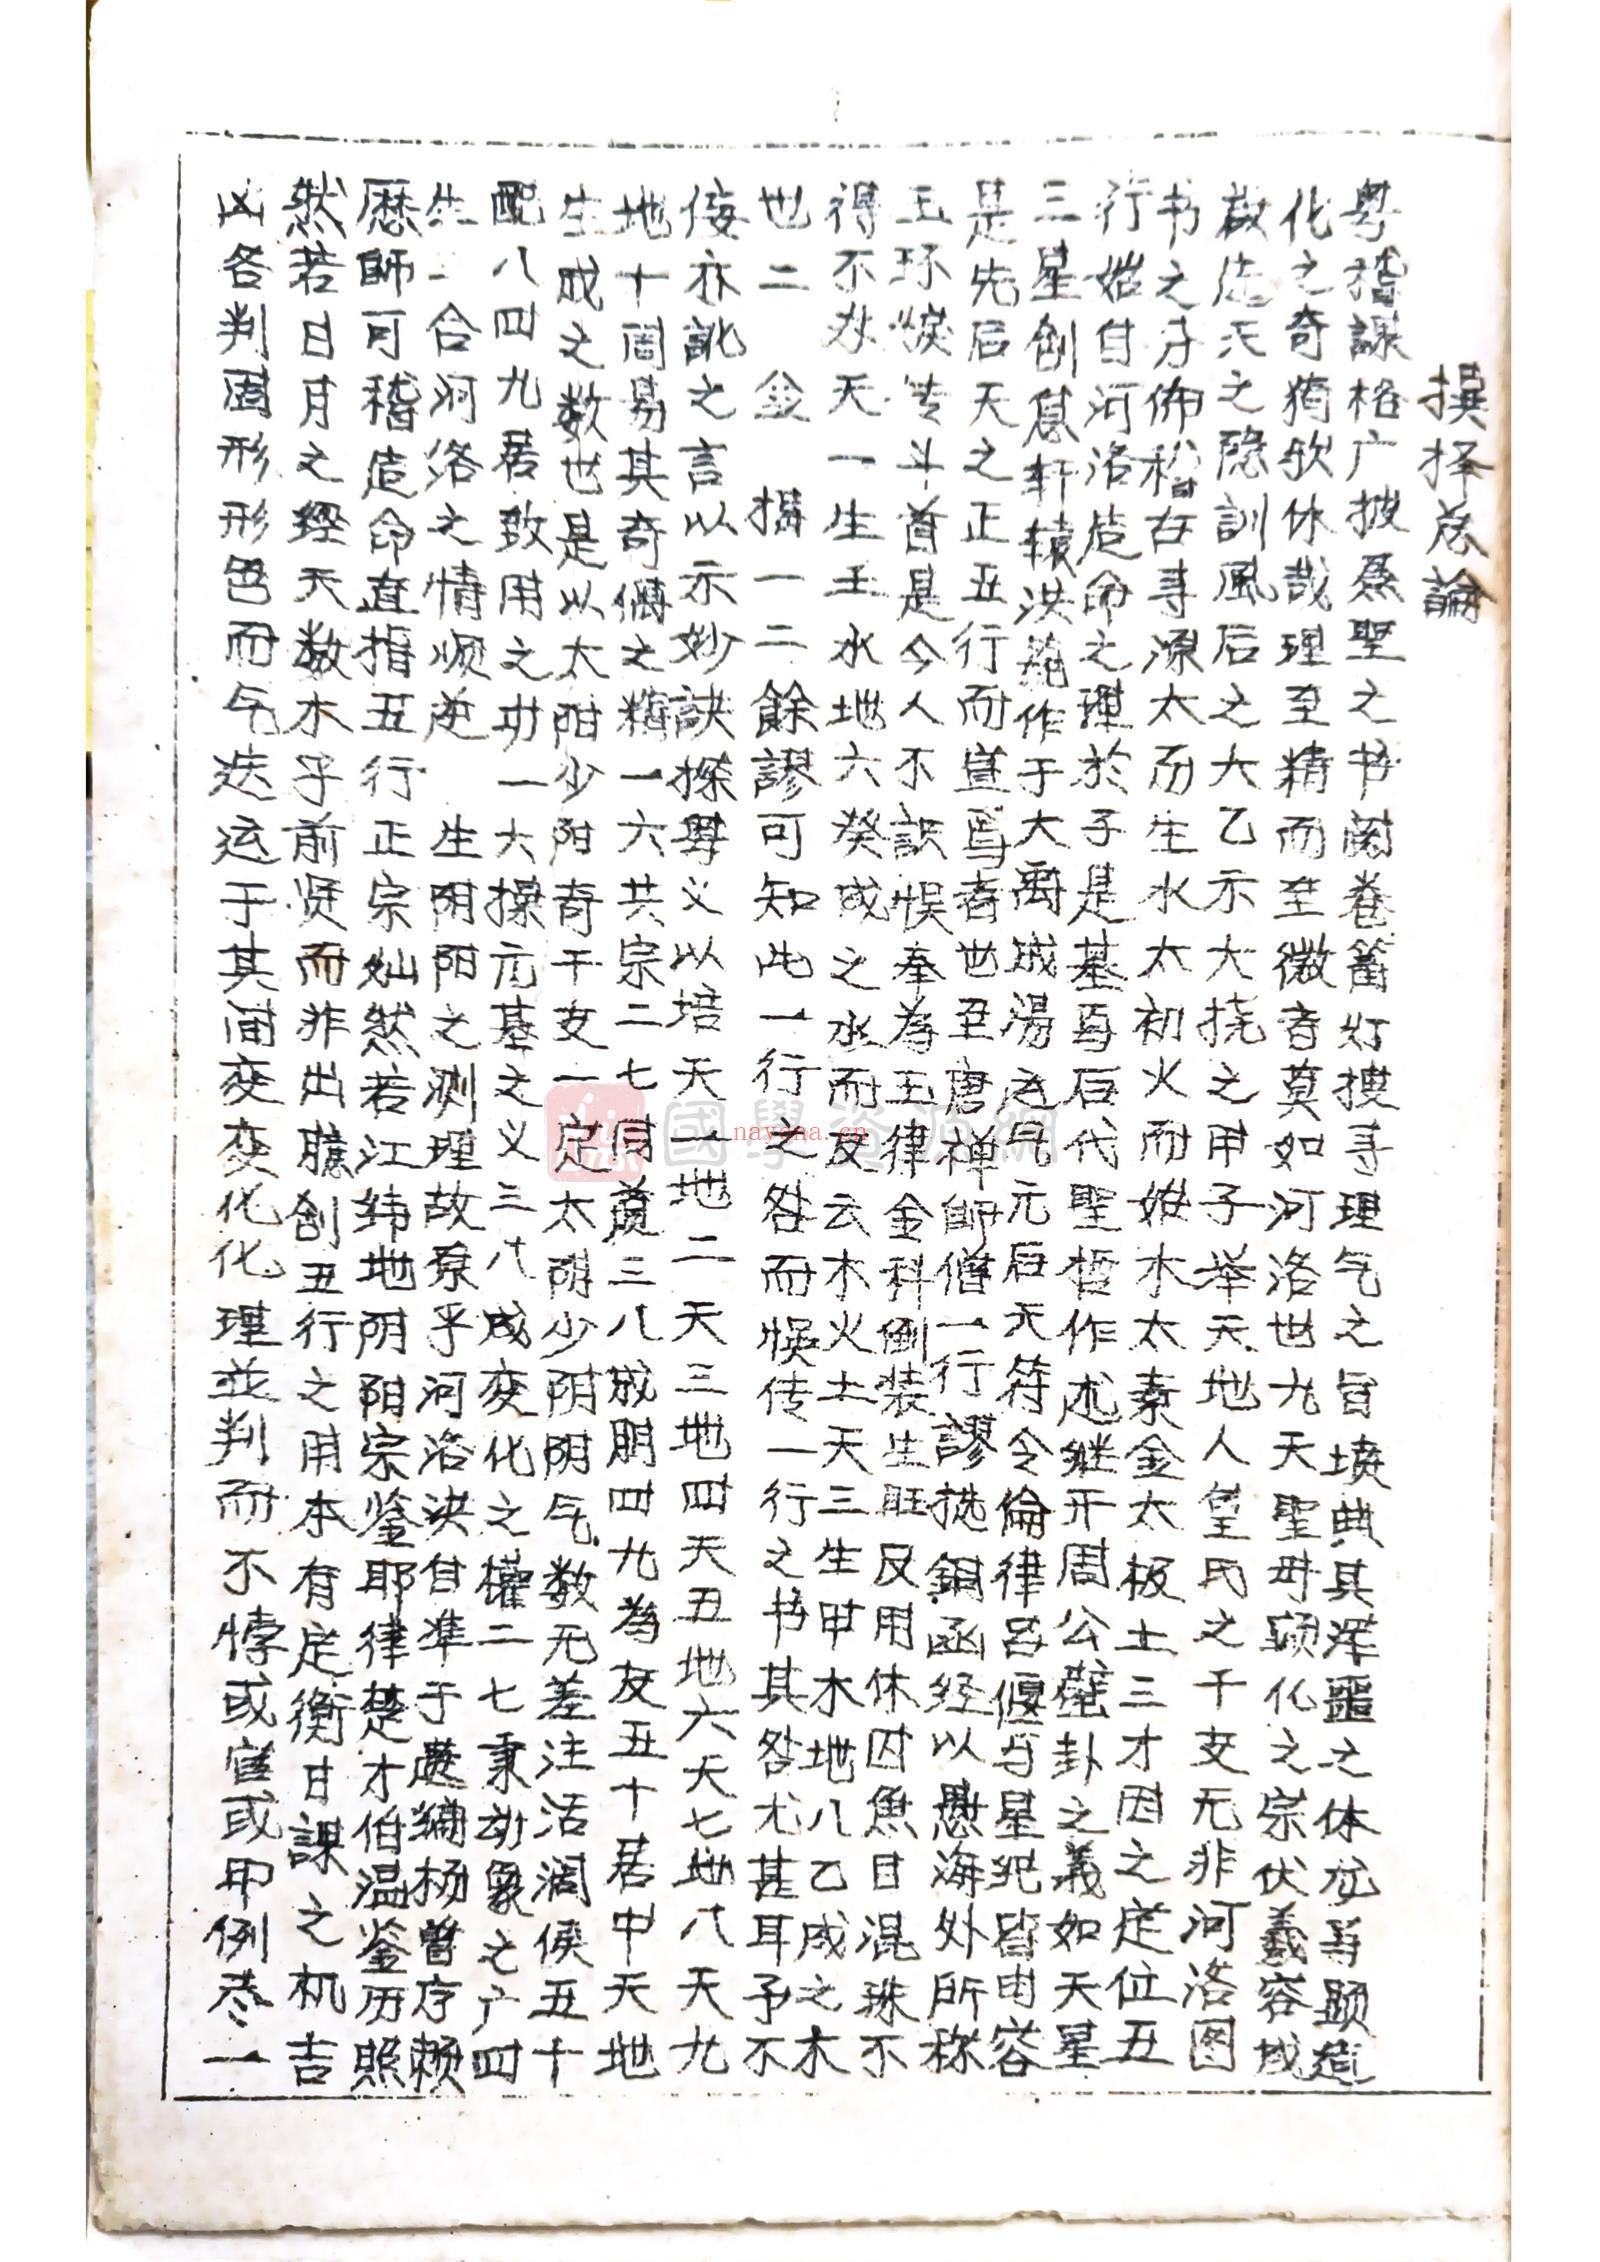 撰择总論
粤稽課格广披羲聖之书阅卷篝灯搜寻理气之旨坟典其浑噩之体龙马题造
化之奇猗欤休哉理至精而至微者莫如河洛世九天聖母頭化之宗伏羲容成
啟先天之隐訓風后之大乙示大挠之甲子举天地人皇氏之干支无非河洛图
书之分佈稽古寻源太而生水太初火而姶木太素金太板土三才因之定位五
行始自河洛造命之理於子是基焉后代聖哲作述继开周公蓥卦之義如天星
三星創息轩辕洪範作于大禹成湯之气元后天符令倫律呂偃与星犯皆由容
是先后天之正五行而豈焉者世丑唐禅師僧一行謬撓銅函经以愚海外所称
玉环㨷㧌斗首是今人不識悮奉為玉律金科倒装生旺反用休囚魚目混珠不
得不㳄天一生壬水地六癸成之水而反云木火土天三生甲木地八乙成之木
也二 金 撰一二餘謬可知此一行之咎而悮传一行之书其咎尤甚耳予不
佞亦訛之言以示妙訣探尋义以培天一地二天三地四天五地六天七地八天九
地十周易其奇偶之精一六共宗二七同道三八成朋四九為友五十居中天地
生成之数也是以太阳少阳奇干支一定太阴少阴阴气数无差注活潤侯五十
配八四九居致用之功一六操元基之义三八成变化之權二七秉动象之广四
生二合河洛之情顺逆 生阴阳之测理故祭乎河洛决甘準于蔑編杨曾序赖
歷師可稽造命直指五行正宗灿然若江纬地阴阳宗鉴耶律楚才伯温鉴历照
然若日月之經天数木子前贤而非出臆創五行之用本有定衡甘課之机吉
凶各判固形形色而气迭运于其间变变化化理並判而不悖或官或甲例尽一
國學資源網
nayona.cn